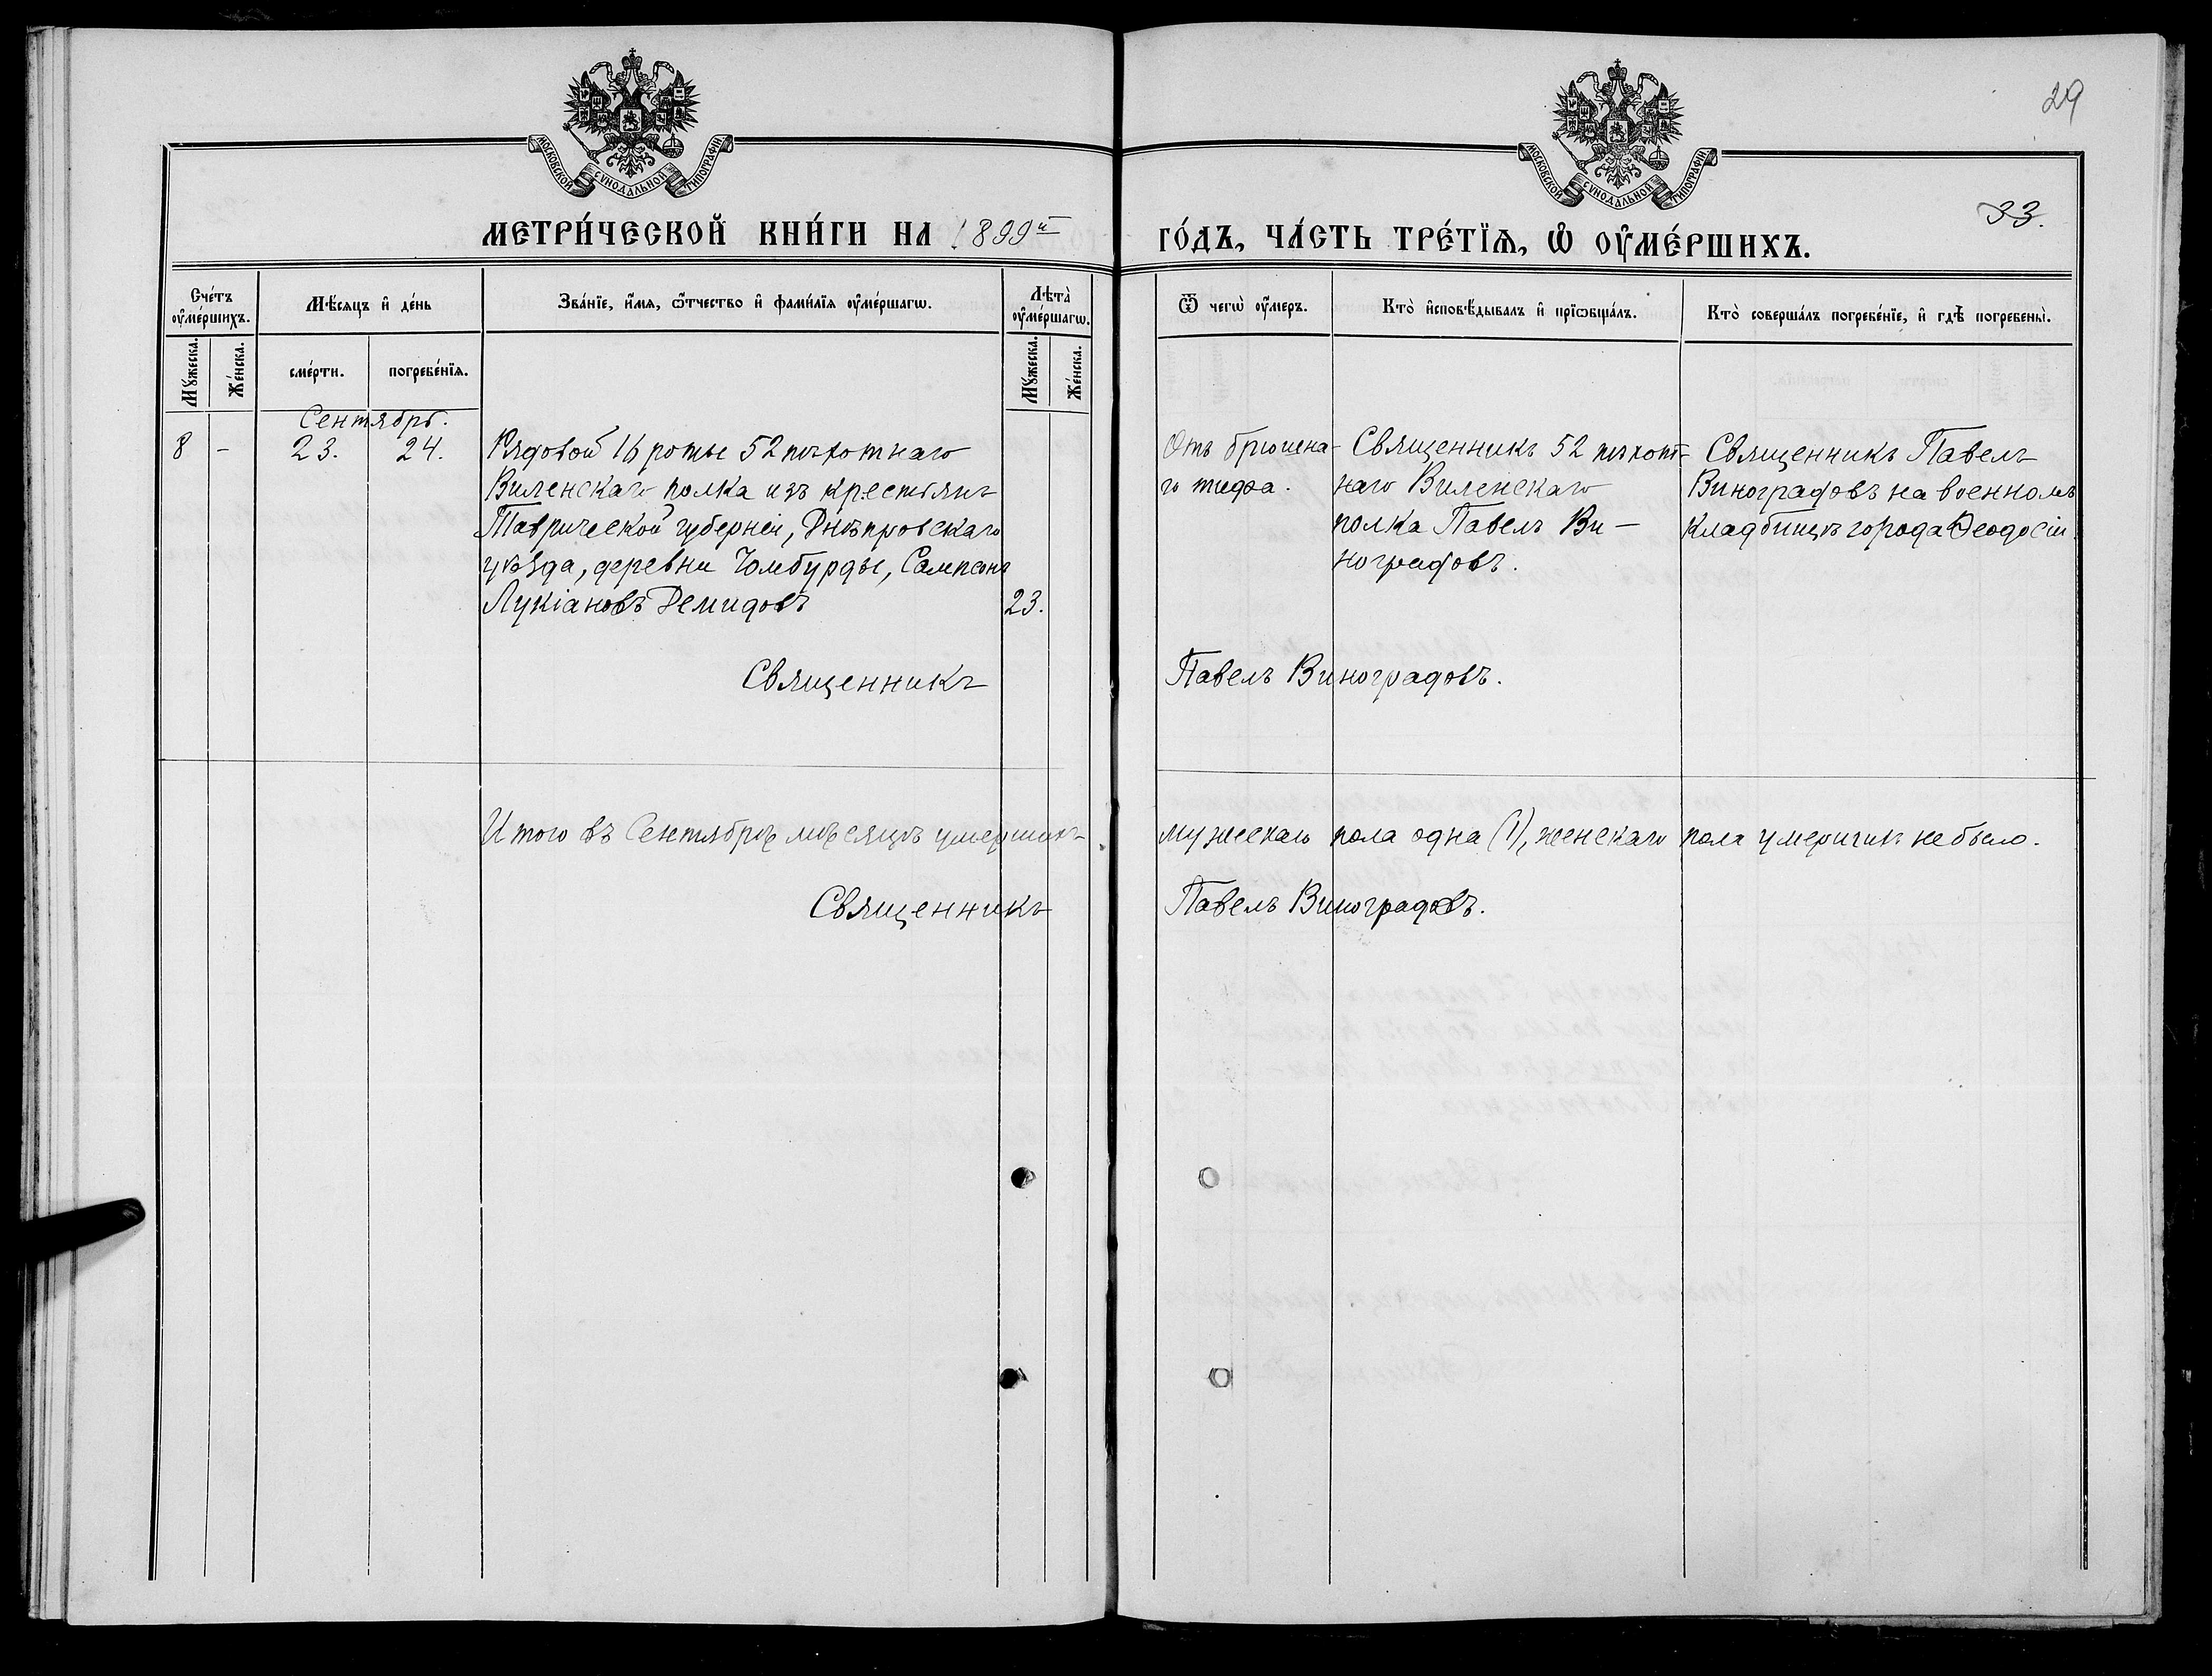 29
МОСКОВСКОЙ СУНОДАЛЬНОЙ ТИПОГРАФІИ.
МОСКОВСКОЙ СУНОДАЛЬНОЙ ТИПОГРАФІИ
33.
МЕТРИ́ЧЕСКОЙ КНИ́ГИ НА 1899й
ГО́ДЪ, ЧА́СТЬ ТРЕ́ТЇѦ, Ѡ҆ ОУ҆МЕ́РШИХЪ.
Сче́тъ оу҆ме́ршихъ.
Мѣ́сяцъ и҆ де́нь
Зва́нїе, и҆́мя, ѻ҆́тчество и҆ фами́лїя оу҆ме́ршагѡ.
Лѣта̀ оу҆ме́ршагѡ.
Ѿ чегѡ̀ оу҆́меръ.
Кто̀ и҆сповѣ́дывалъ и҆ прїѻбща́лъ.
Кто̀ соверша́лъ погребе́нїе, и҆ гдѣ̀ погребены̀.
Мꙋ́жеска.
Же́нска.
сме́рти.
погребе́нїя.
Мꙋ́жеска.
Же́нска.
Сентябрь.
8 - 23. 24.
Рядовой 16 роты 52 пѣхотнаго
Виленскаго полка изъ крестьянъ
Таврической губерніи, Днѣпровскаго
уѣзда, деревни Чомбурды, Сампсонъ
Лукіановъ Демидовъ 23.
Отъ брюшна-
го тифа.
Священникъ 52 пѣхот-
наго Виленскаго
полка Павелъ Ви-
ноградовъ.
Священникъ Павелъ
Виноградовъ на военномъ
кладбищѣ города Ѳеодосіи.
Священникъ Павелъ Виноградовъ.
Итого въ Сентябрѣ мѣсяцѣ умершихъ мужескаго пола одна (1), женскаго пола умершихъ не было.
Священникъ Павелъ Виноградовъ.